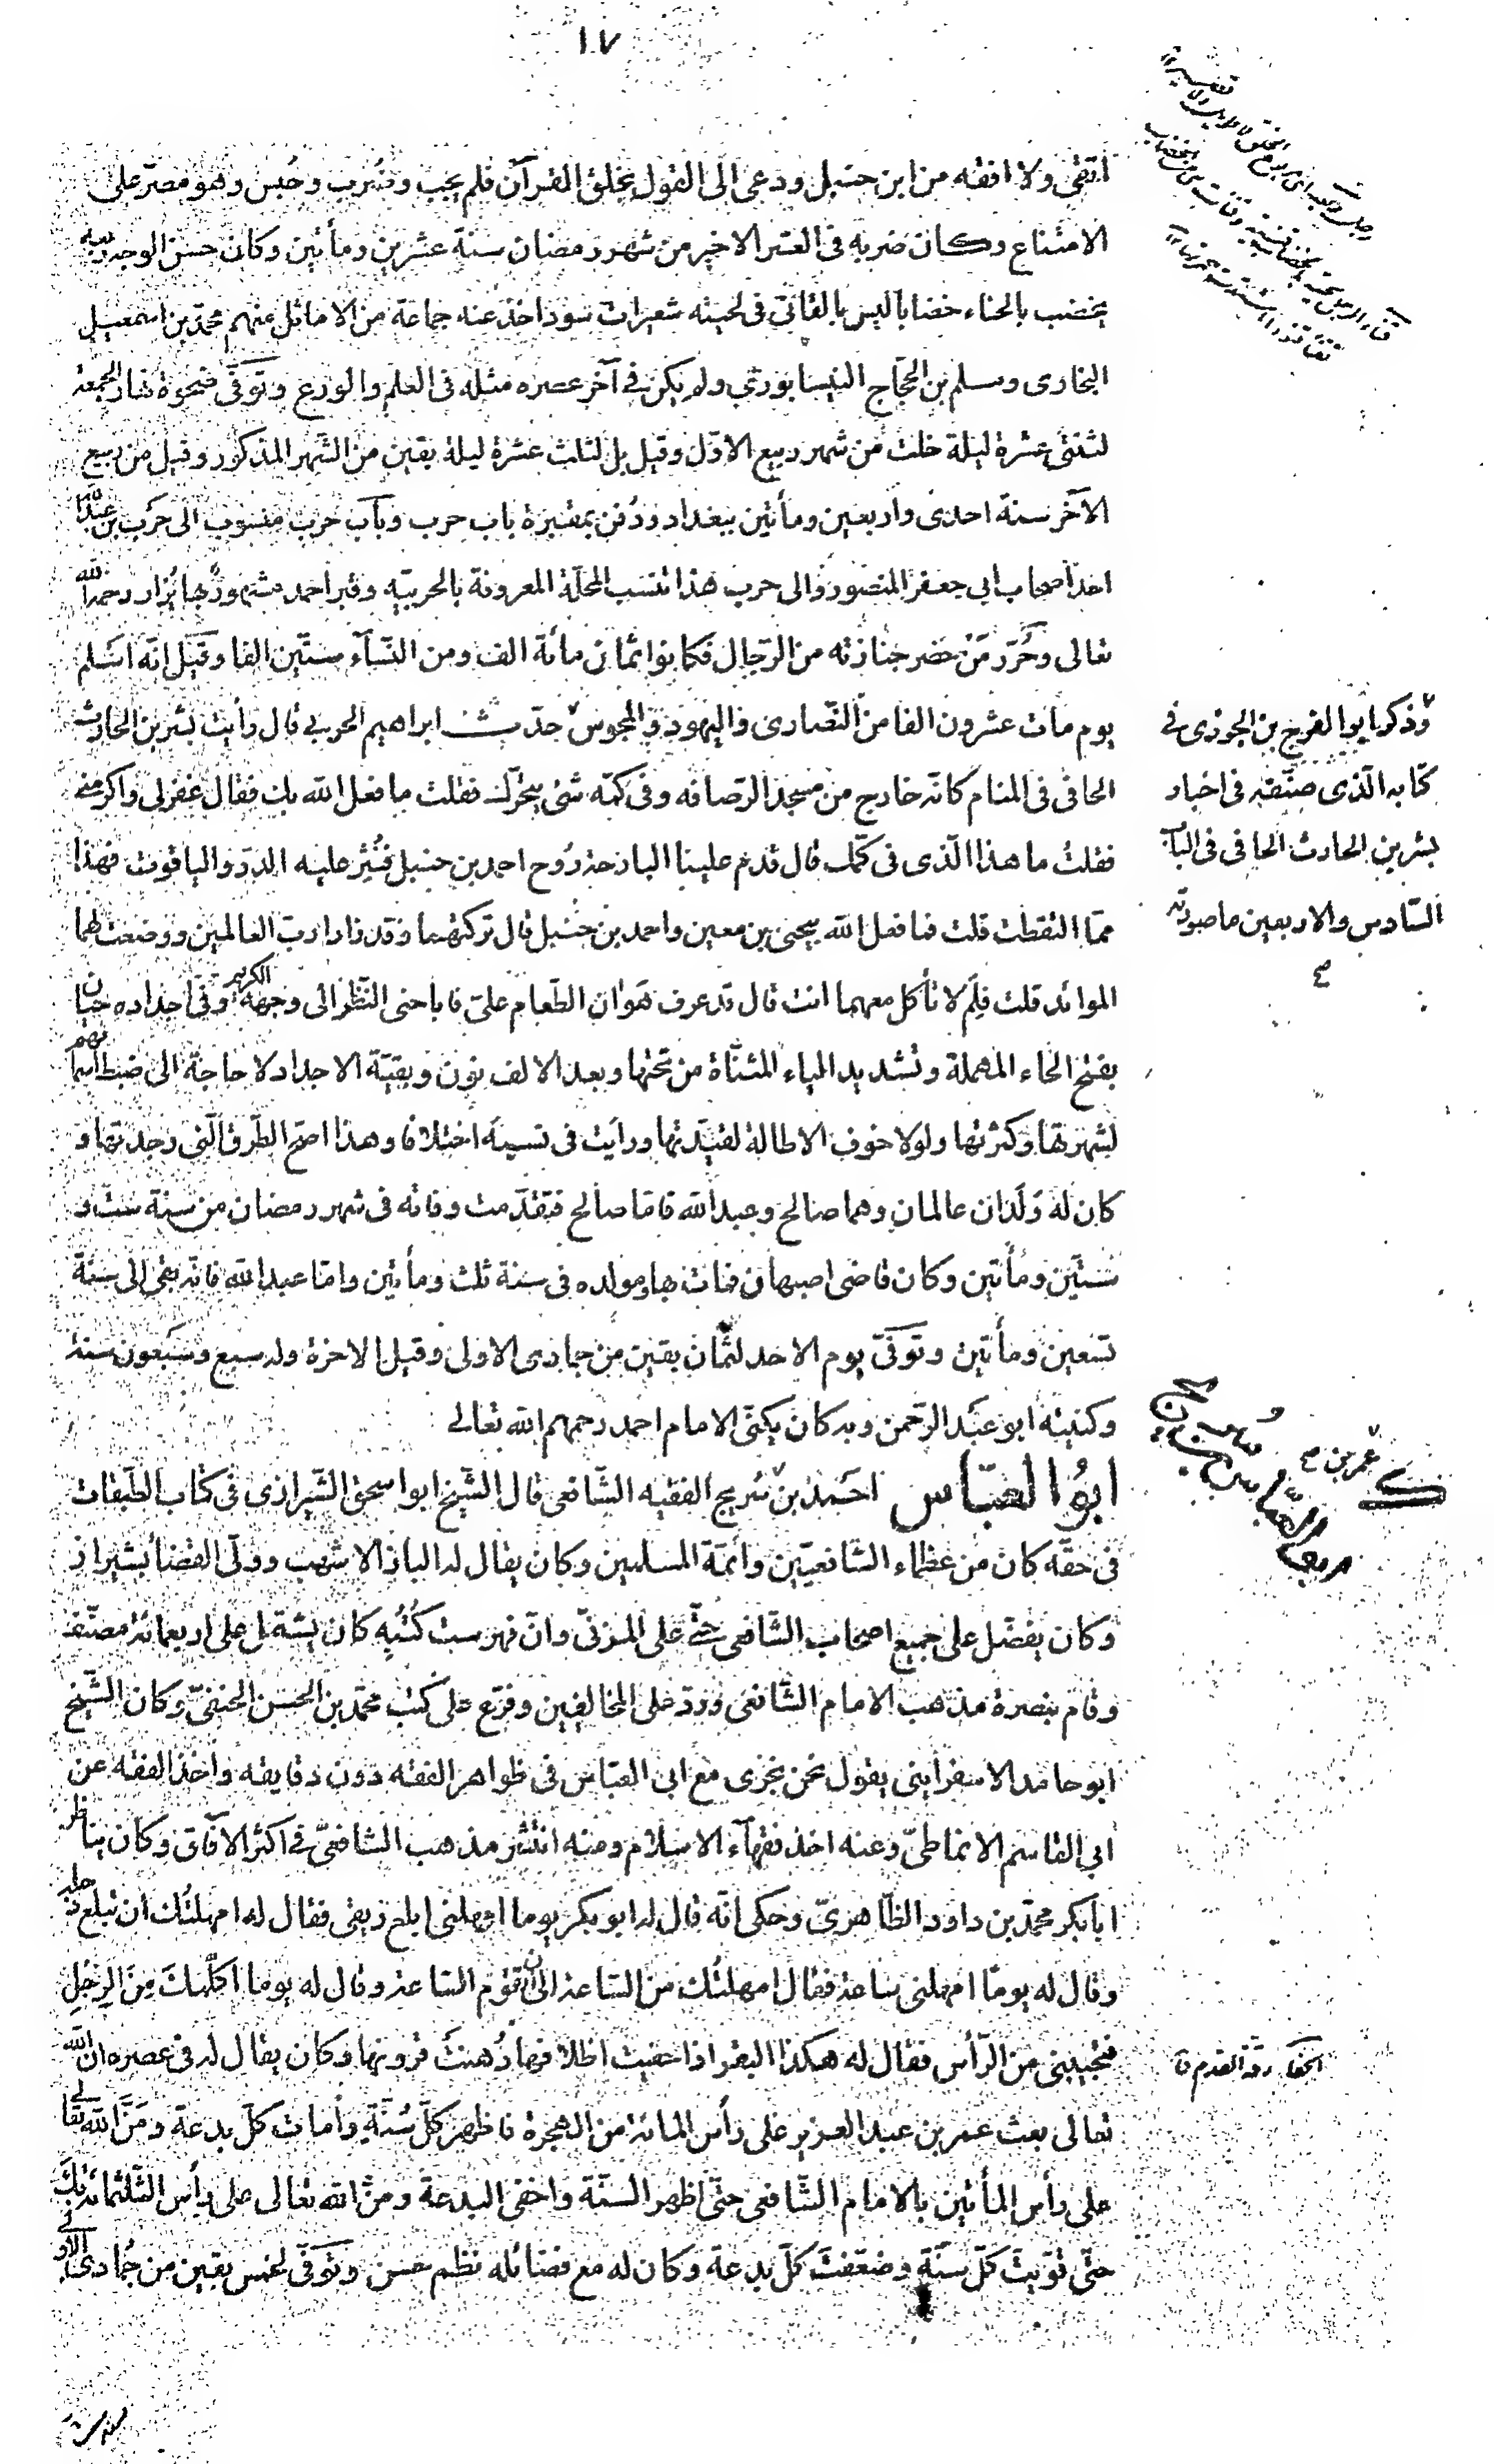 ١٧
اتقى ولا افقه من ابن حنبل ودعى الى القول بخلق القرآن فلم يجب وضُرِب وحُبس وهو مصرّ على
الامتناع وكان ضربه فى العشر الاخير من شهر رمضان سنة عشرين ومأتين وكان حسن الوجه ربعة
يخضب بالحناء خضابا ليس بالقانى فى لحيته شعيرات سود اخذ عنه جماعة من الاماثل منهم محمّد بن اسمعيل
البخارى ومسلم بن الحجّاج النيسابورىّ ولم يكن فى آخر عصره مثله فى العلم والورع وتوفّى ضحوة نهار الجمعة
لثنتى عشرة ليلة خلت من شهر ربيع الاوّل وقيل بل لثلث عشرة ليلة بقين من الشّهر المذكور وقيل من ربيع
الآخر سنة احدى واربعين ومأتين ببغداد ودُفن بمقبرة باب حرب وباب حرب منسوب الى حرب بن عبد الله
احد اصحاب ابى جعفر المنصور والى حرب هذا تنسب المحلّة المعروفة بالحربيّه وقبر احمد مشهور بها يُزار رحمه الله
تعالى وحُزّر مَنْ حضر جنازته من الرّجال فكانوا ثمان مائة الف ومن النّسآء ستّين الفا وقيل انّه اسلم
يوم مات عشرون الفا من النّصارى واليهود والمجوس حدّث ابراهيم الحربى قال رأيت بشر بن الحارث
الحافى فى المنام كانّه خارج من مسجد الرّصافه وفى كمّه شئ يتحرّك فقلت ما فعل الله بك فقال غفر لى واكرمنى
فقلتُ ما هذا الّذى فى كمّك قال قدم علينا البارحة رُوح احمد بن حنبل فنُثِرَ عليه الدرّ والياقوت فهذا
ممّا التقطت قلت فما فعل الله بيحيى بن معين واحمد بن حنبل قال تركتهما وقد زارا ربّ العالمين ووضعت لهما
الموائد قلت فلِمَ لا تأكل معهما انت قال قد عرف هَوان الطّعام علىّ فاباحنى النّظر الى وجهه الكريم وفى اجداده حيّان
بفتح الحاء المهملة وتشديد الياء المثنّاة من تحتها وبعد الالف نون وبقيّة الاجداد لا حاجة الى ضبط اسمائهم
لشهرتها وكثرتها ولولا خوف الاطالة لقيّدتها ورأيت فى نسبه اختلافا وهذا اصحّ الطّرق الّتى وجدتها و
كان له وَلَدان عالمان وهما صالح وعبد الله فامّا صالح فتقدّمت وفاته فى شهر رمضان من سنة ستّ و
ستّين ومأتين وكان قاضى اصبهان فمات بها ومولده فى سنة ثلث ومأتين وامّا عبد الله فانّه بقى الى سنة
تسعين ومأتين وتوفّى يوم الاحد لثمان بقين من جمادى الاولى وقيل الاخرة وله سبع وسبعون سنة
وكنيته ابو عبد الرّحمن وبه كان يكنّى الامام احمد رحمهم الله تعالى
ابُو العبّاس احمد بن سُريج الفقيه الشّافعى قال الشّيخ ابو اسحق الشّيرازى فى كتاب الطّبقات
فى حقّه كان من عظماء الشّافعيّين وائمّة المسلمين وكان يقال له الباز الاشهب وولّى القضأ بشيراز
وكان يفضّل على جميع اصحاب الشّافعى حتّى على المزنىّ وانّ فهرست كُتُبِه كان يشتمل على اربعمائة مصنّف
وقام بنصرة مذهب الامام الشّافعى وردّ على المخالفين وفرّع على كتب محمّد بن الحسن الحنفىّ وكان الشّيخ
ابو حامد الاسفرأينى يقول نحن نجرى مع ابى العبّاس فى ظواهر الفقه دون دقايقه واخذ الفقه عن
ابى القاسم الانماطىّ وعنه اخذ فقهآء الاسلام ومنه انتشر مذهب الشافعىّ فى اكثر الآفاق وكان يناظر
ابا بكر محمّد بن داود الظّاهرىّ وحكى انّه قال له ابو بكر يوما امهلنى ابلع ريقى فقال له امهلتُك ان تبلع دجلة
وقال له يومًا امهلنى ساعة فقال امهلتُك من السّاعة الى ان تقوم السّاعة وقال له يوما اكلّمك مِنَ الرِجْلِ
فتجيبنى من الرّأس فقال له هكذا البقر اذا حفيت اظلافها دُهنت قرونها وكان يقال له فى عصره ان الله
تعالى بعث عمر بن عبد العزيز على رأس المائة من الهجرة فاظهر كلّ سُنّةٍ وأمات كلّ بدعة ومَنَّ الله تعالى
على رأس المأتين بالامام الشّافعى حتّى اظهر السنّة واخفى البدعة ومنّ الله تعالى على رأس الثّلثمائة بك
حتّى قوّيتَ كلّ سنّةٍ وضعّفتَ كلّ بدعة وكان له مع فضائله نظم حسن وتوفّى لخمس بقين من جُمادى الاولى
وذكر ابو الفرج بن الجوزى فى
كتابه الّذى صنّفه فى اخبار
بشر بن الحارث الحافى فى الباب
السّادس والاربعين ما صورته
صح
عمر بن صح
ابو العبّاس بن سريج
الحفا رقة القدم